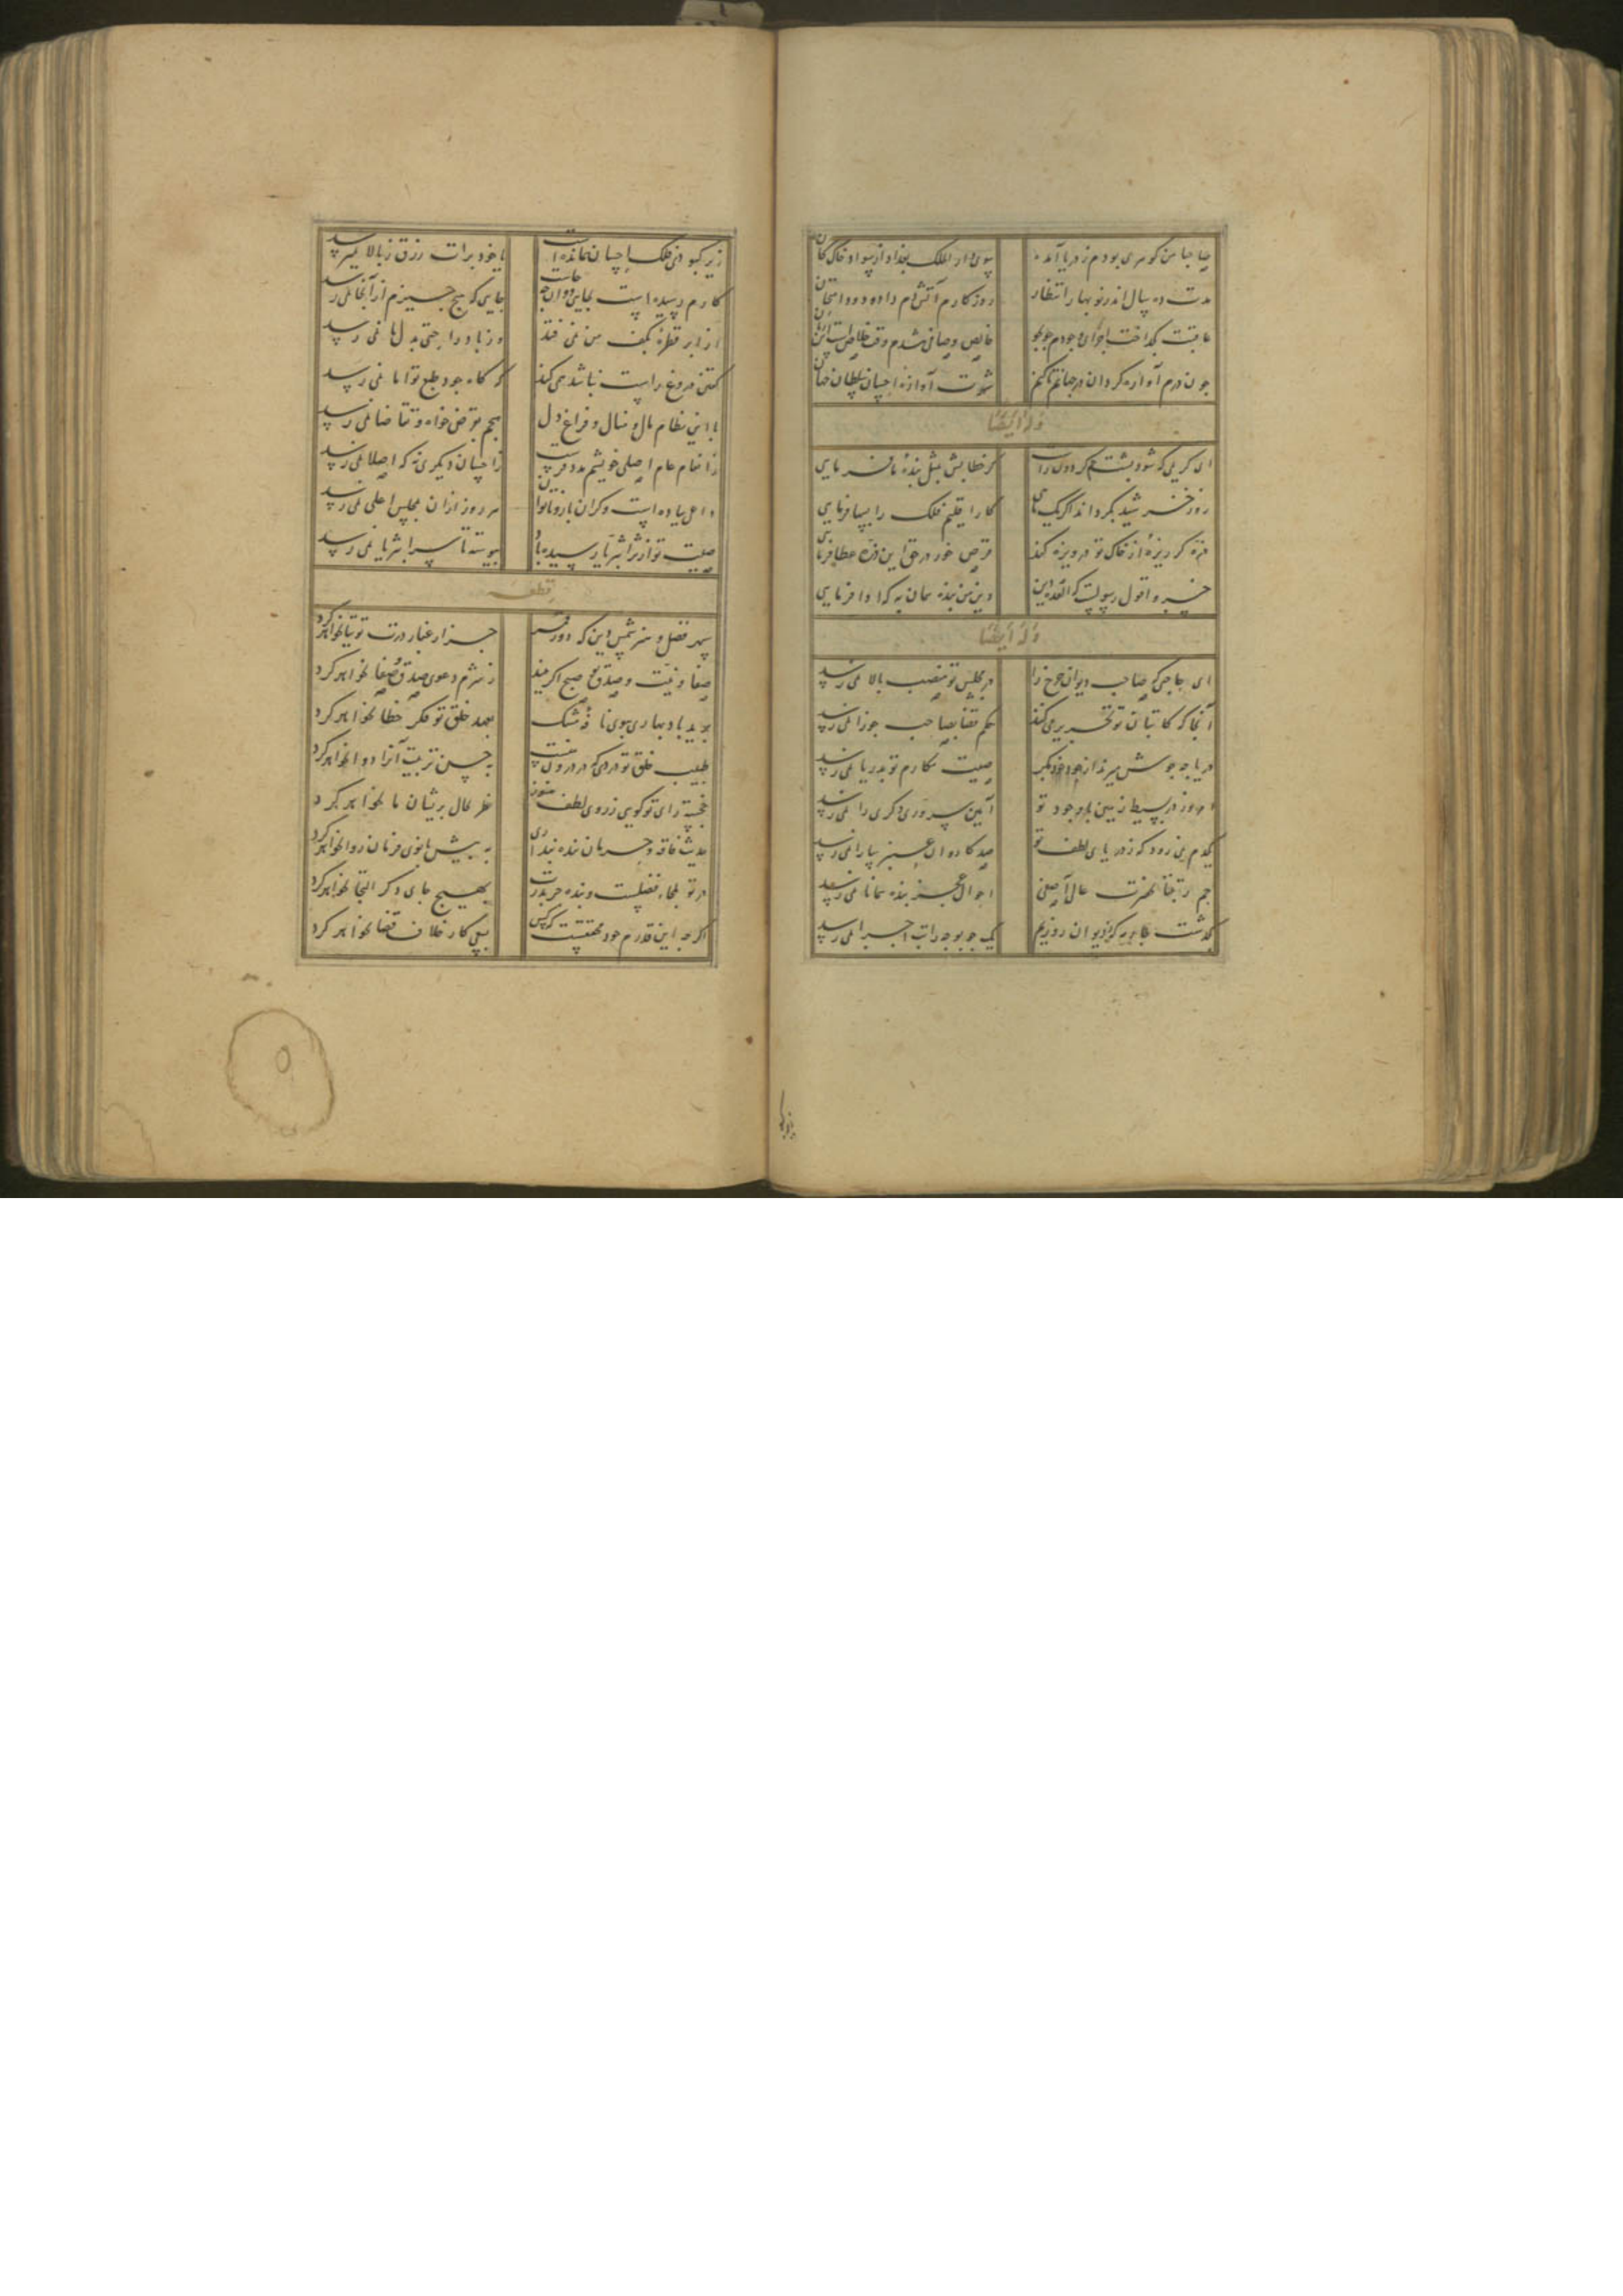 صاحبا من گوهری بودم ز دریا آمده
سوی دار الملک بغداد از سواد خاک کان
مدت ده سال اندر نو بهار انتظار
روزگارم آتش غم داده و دود امتحان
عاقبت بگداخت اجزای وجودم جو بجو
خالص و صافی شدم وقت خلاص است این زمان
چون درم آواره گردان در جهانم تا کنم
شهرت آوازه احسان سلطان جهان
وله ایضا
ای کریمی که شود پشت گردون راست
گر خطابش بمثل بنده ما فرمایی
روز خورشید بگرداند اگر یک
کار اقلیم فلک را بسها فرمایی
ذره گر ریزه از خاک تو دریوزه کند
قرص خور در حق این ذره عطا فرمایی
خسروا قول رسولست که العده دین
دین من بنده همان به که ادا فرمایی
وله ایضا
ای حاجی که صاحب دیوان چرخ را
در مجلس تو منصب بالا نمی رسد
آنجا که کاتبان تو تحریر می کنند
حکم قضا بصاحب جوزا نمی رسد
دریا چه جوش میزند از جود خود مگر
صیت مکارم تو بدریا نمی رسد
امروز در بسیط زمین با وجود تو
آیین سروری دگری را نمی رسد
یکدم نمی رود که ز دریای لطف تو
صد کاروان عنبر سارا نمی رسد
جم رتبتا بحضرت عالی آصفی
احوال عجز بنده همانا نمی رسد
بگذشت که ز دیوان روزیم
یک جو بوجه راتب اجرا نمی رسد
زیر کبودی فلک احسان نمانده است
یا خود برات رزق ز بالا نمیرسد
کارم رسیده است بجایی و آن
جایی که هیچ چیزم از آنجا نمی رسد
از ابر قطره بکف من نمی فتد
وز باد راحتی بدل ما نمی رسد
گفتی دروغ راست نباشد همی کند
که گاه جود طبع تو اما نمی رسد
با این نظام مال و منال و فراغ دل
هیچم بقرض خواه و تقاضا نمی رسد
ز انعام عام اصلی خویشم مدد فرست
ز احسان دیگری نه که اصلا نمی رسد
هر روز ازان مجلس اعلی نمی رسد
صیت تو از ثرا بثریا رسیده باد
پیوسته تا سرا بثریا نمی رسد
قطعه
سپهر فضل و هنر شمس دین که دور قمر
جز از غبار درت توتیا نخواهد کرد
صفا و نیت و صدق تو صبح اگر بیند
ز شرم دعوی صدق و صفا نخواهد کرد
بوید باد بهاری بوی نافه مشک
بعهد خلق تو فکر خطا نخواهد کرد
طبیب خلق تو دردی که در درون منست
به حسن تربیت آنرا دوا نخواهد کرد
خجسته رای تو گویی ز روی لطف هنوز
نظر بحال پریشان ما نخواهد کرد
حدیث فاقه و حرمان بنده پنداری
به پیش بانوی فرمان روا نخواهد کرد
در تو ملجاء فضلست و بنده جز بدرت
بهیچ جای دگر التجا نخواهد کرد
اگر چه این قدرم خود محققست که کس
بهیچ کار خلاف قضا نخواهد کرد